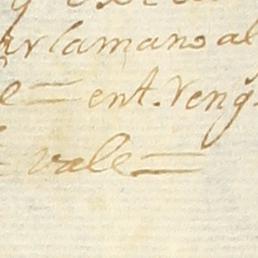 la mano al
= ent. Reng.
= vale =